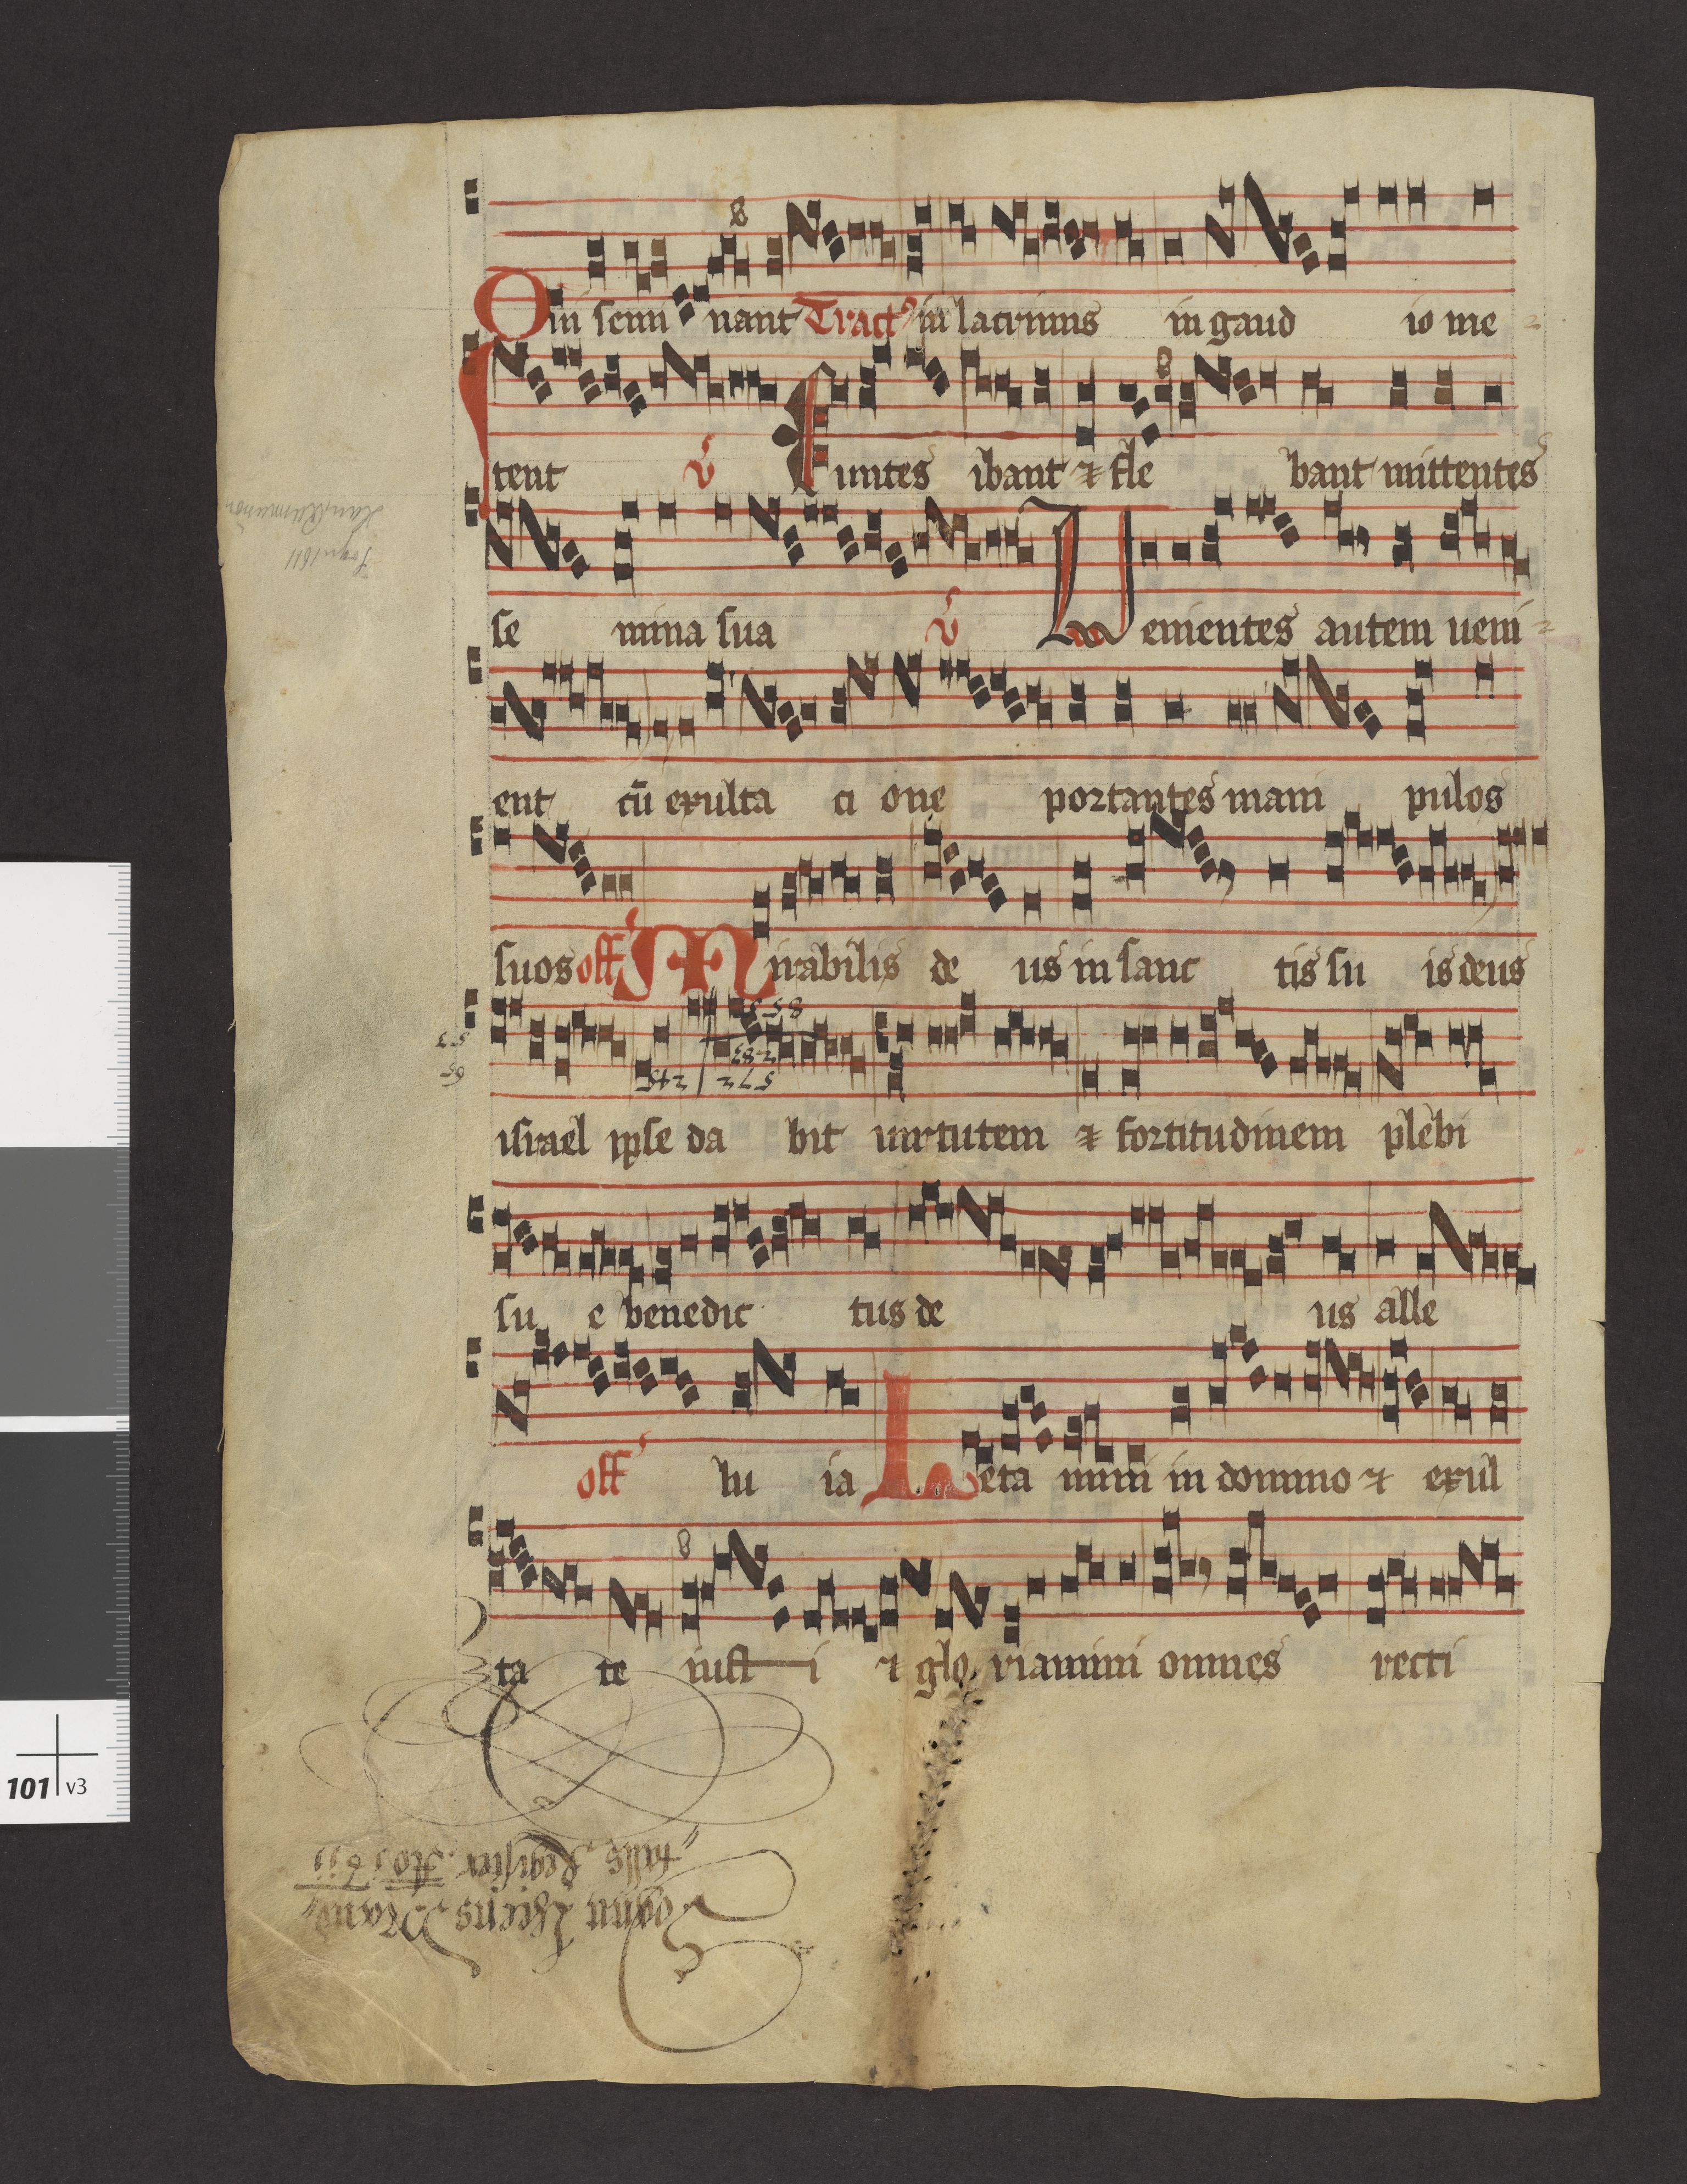 Qui semi nant Tract9 in lacrimis in gaud io me
tent v̓ Euntes ibant ⁊ fle bant mittentes
se mina sua v̓ Uenientes autem ueni
ent cū exulta ci one portantes mani pulos
suos off Mirabilis de us in sanc tis su is deus
558
283
572 / 245
israel ipse da bit uirtutem ⁊ fortitudinem plebi
su e benedic tus de us alle
off lu ia Leta mini in domino ⁊ exul
ta te iust i ⁊ glo riamini omnes recti
Sogn 1611
101 v3
Sognn Lheens Mand
talls Register. Ao 1611